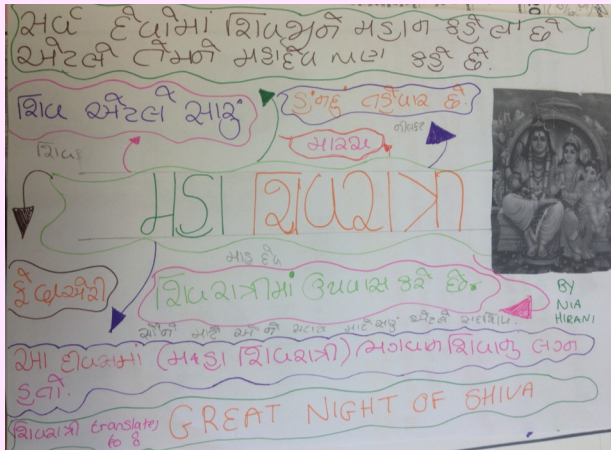 સર્વ દેવોમાં શિવજીને મહાન કહેલા છે
એટલે તેમને મહાદેવ પણ કહે છે.
શિવ એટલે સારું
હિન્દુ તહેવાર છે.
નીલકંઠ
મારચ
મહા શિવરાત્રી
મહાદેવ
ફેબ્રુએરી
શિવરાત્રીમાં ઉપવાસ કરે છે.
BY
NIA
HIRANI
માટે એટલે
આ દિવસમાં (મહા શિવરાત્રી) ભગવાન શિવાનુ લગ્ન
હતો.
શિવરાત્રી translates
to
GREAT NIGHT OF SHIVA